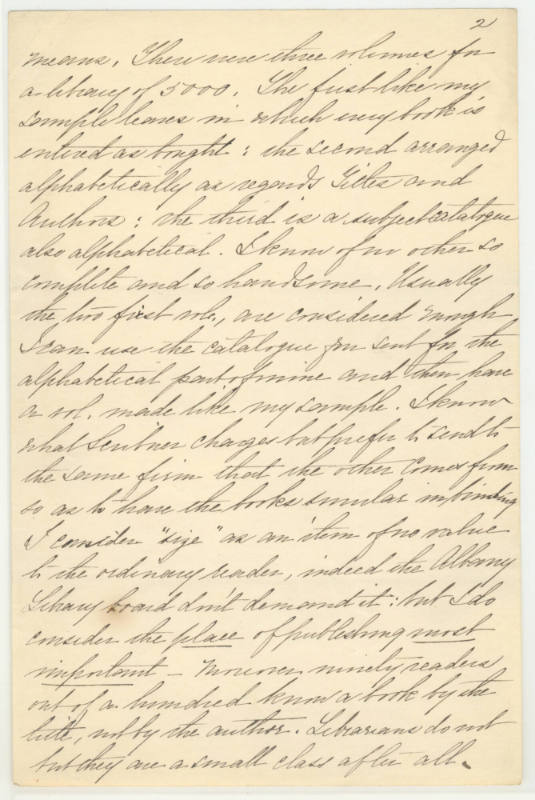 2
means. There were three volumes for
a library of 5000. The first like my
sample leaves in which every book is
entered as bought: the second arranged
alphabetically as regards Titles and
Authors: the third is a subject catalogue
also alphabetical. I know of no other so
complete and so handsome. Usually
the two first vols, are considered enough,
I can use the catalogue you sent for the
alphabetical part of mine and then have
a vol. made like my sample. I know
what Scribner charges but prefer to send to
the same firm that the other comes from
so as to have the books similar in binding
I consider "size" as an item of no value
to the ordinary reader, indeed the Albany
Library board don't demand it: but I do
consider the place of publishing most
important - Moreover ninety readers
out of a hundred know a book by the
title, not by the author. Librarians do not
but they are a small class after all.